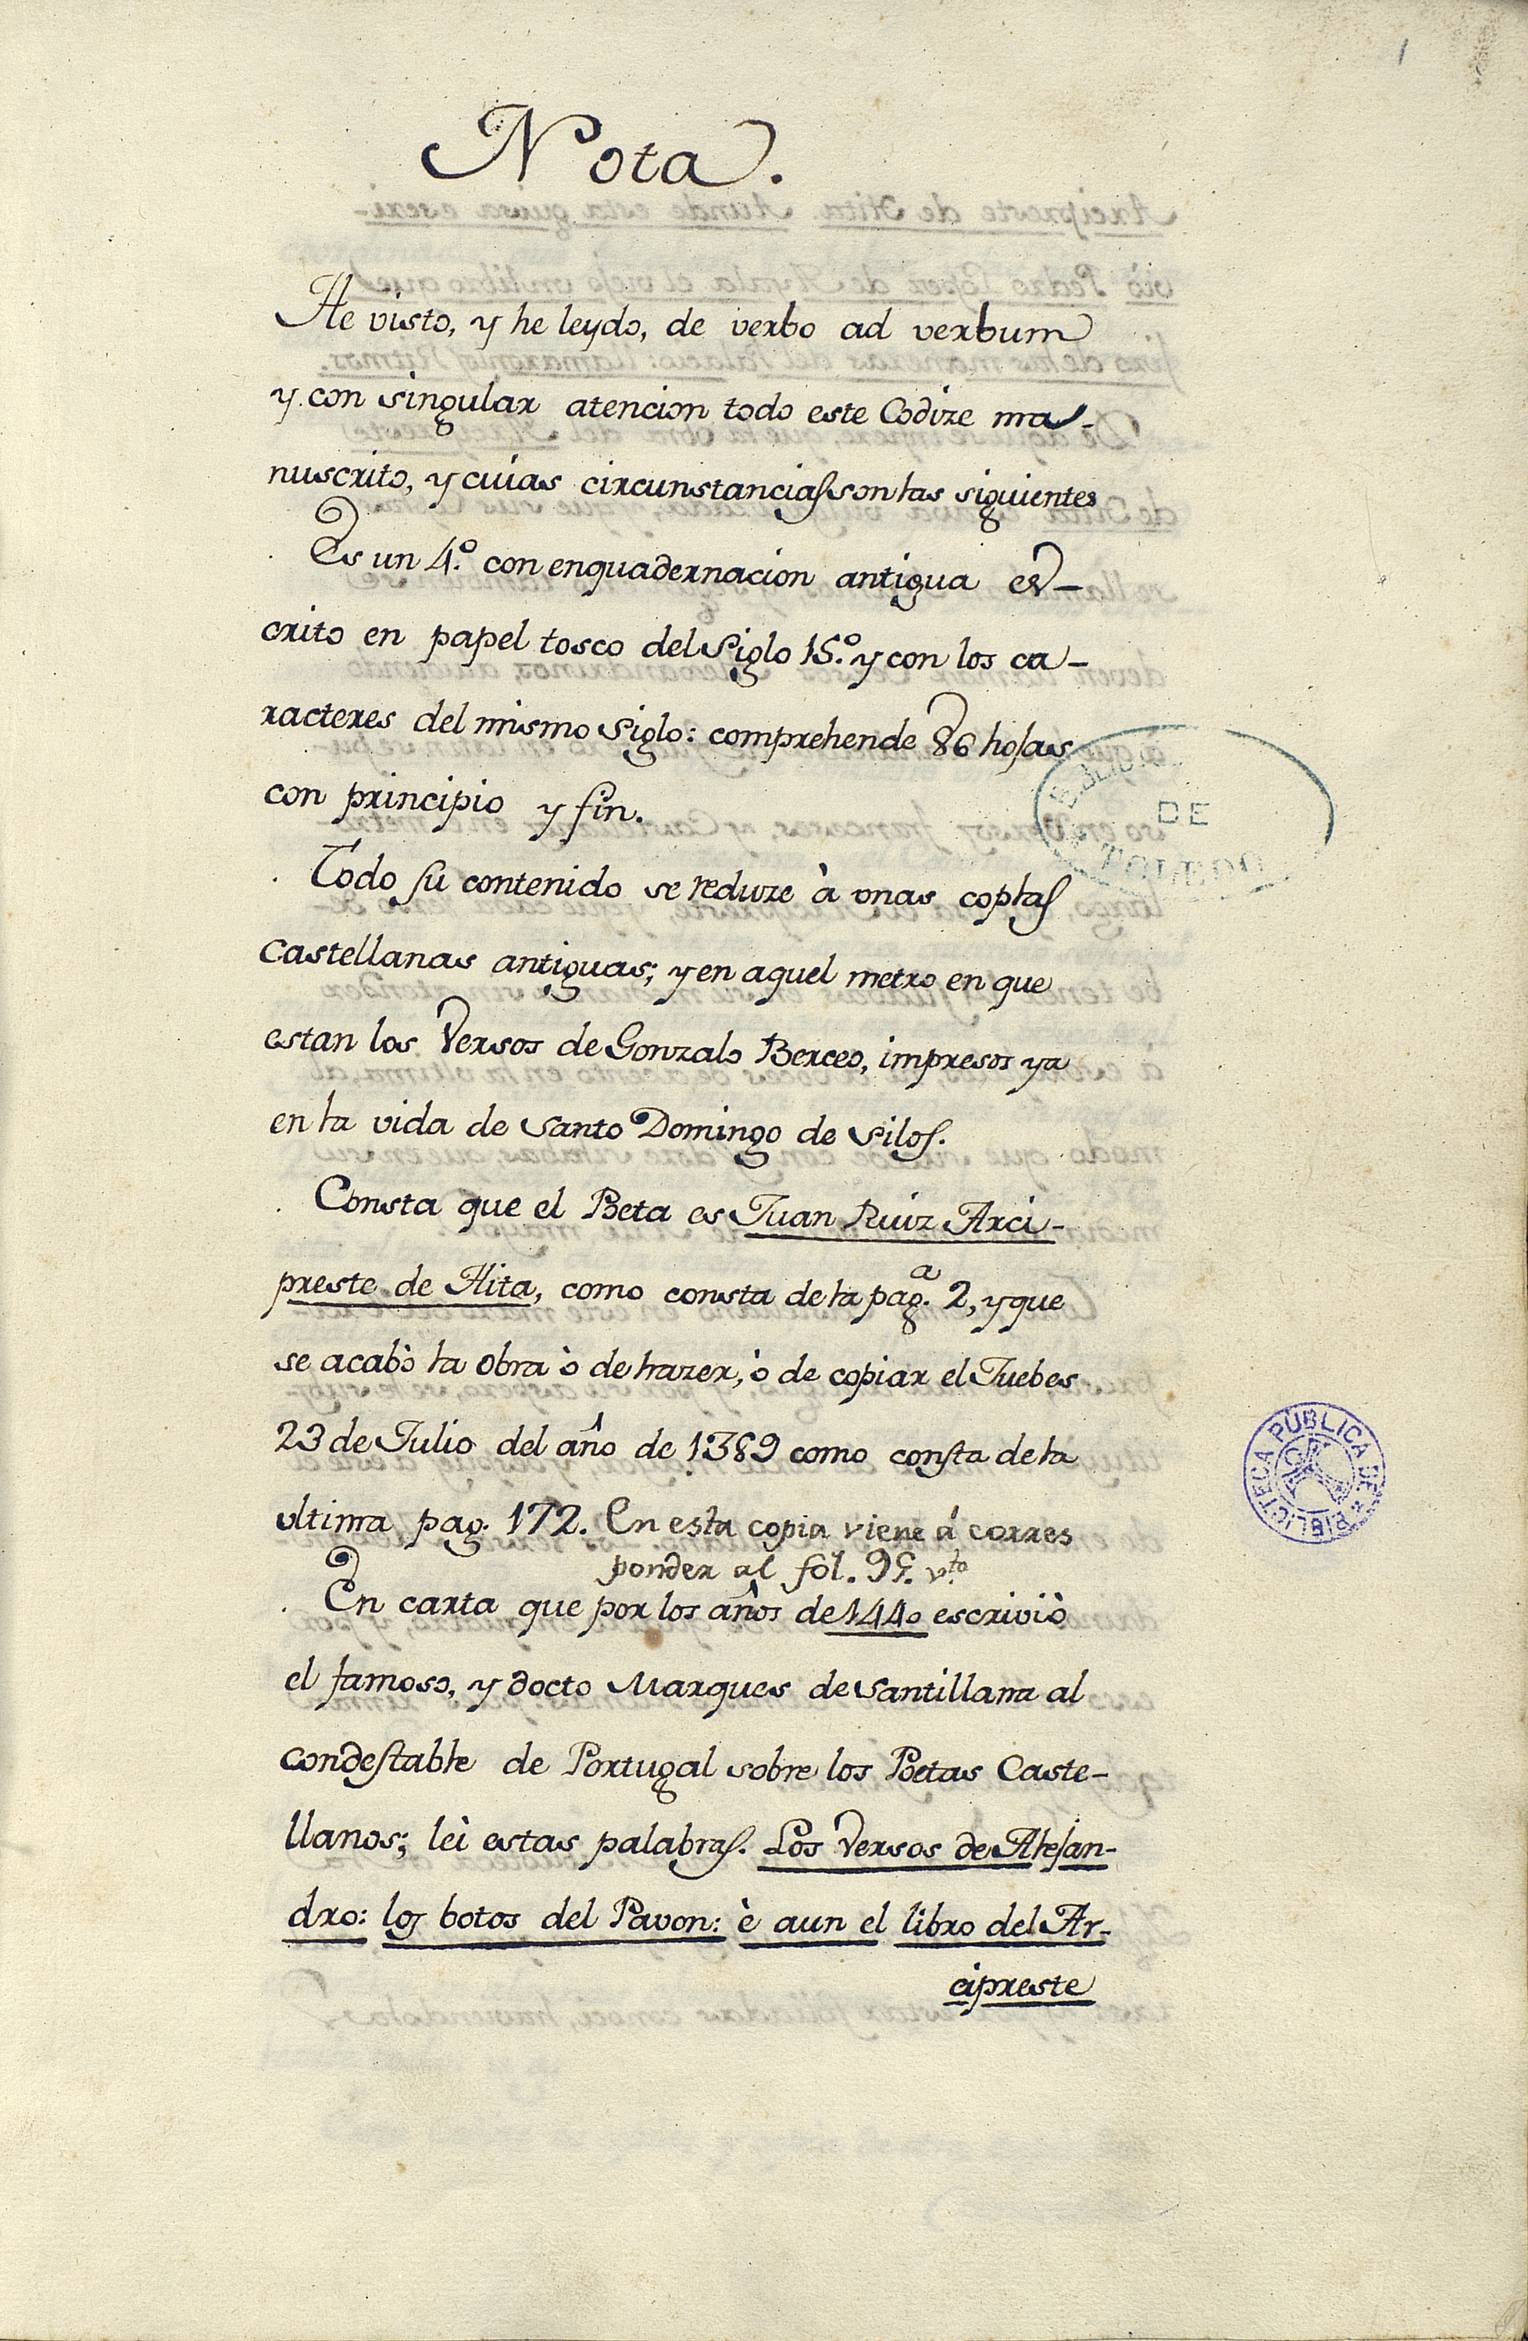 1
Nota.
He visto, y he leydo, de verbo ad verbum
y con singular atencion todo este Codize ma-
nuscrito, y cuias circunstancias son las siguientes
Es un 4.º con enquadernacion antigua es-
crito en papel tosco del Siglo 15.º y con los ca-
racteres del mismo Siglo: comprehende 86 hojas
con principio y fin.
Todo su contenido se reduze à unas coplas
castellanas antiguas; y en aquel metro en que
estan los Versos de Gonzalo Berceo, impresos ya
en la vida de Santo Domingo de Silos.
Consta que el Poeta es Juan Ruiz Arci-
preste de Hita, como consta de la pag.ª 2, y que
se acabò la obra ò de hazer, ò de copiar el Juebes
23 de Julio del año de 1389 como consta de la
ultima pag. 172. En esta copia viene á corres
ponder al fol. 99. vto
En carta que por los años de 1440 escriviò
el famoso, y docto Marques de Santillana al
condestable de Portugal sobre los Poetas Caste-
llanos; leì estas palabras. Los Versos de Alejan-
dro: los botos del Pavon: è aun el libro del Ar-
cipreste
DE
TOLEDO
BIBLIOTECA PÚBLICA DE